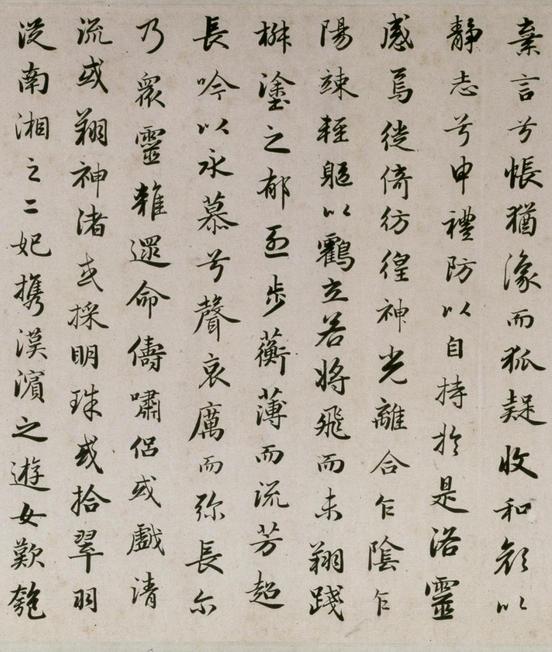 棄言兮悵猶豫而狐疑收和顏以
靜志兮申禮防以自持於是洛靈
感焉徙倚彷徨神光離合乍陰乍
陽竦輕軀以鶴立若將飛而未翔踐
椒塗之郁烈步蘅薄而流芳超
長吟以永慕兮聲哀厲而彌長尔
乃眾靈雜遝命儔嘯侶或戲清
流或翔神渚或採明珠或拾翠羽
從南湘之二妃携漢濱之遊女歎匏